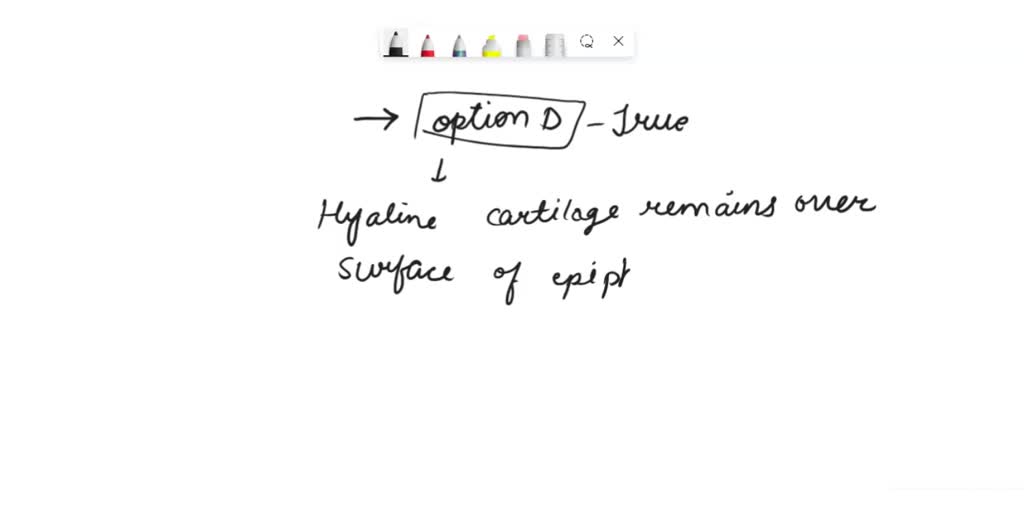 → option D - True
↓
Hyaline cartilage remains over
surface of epiph